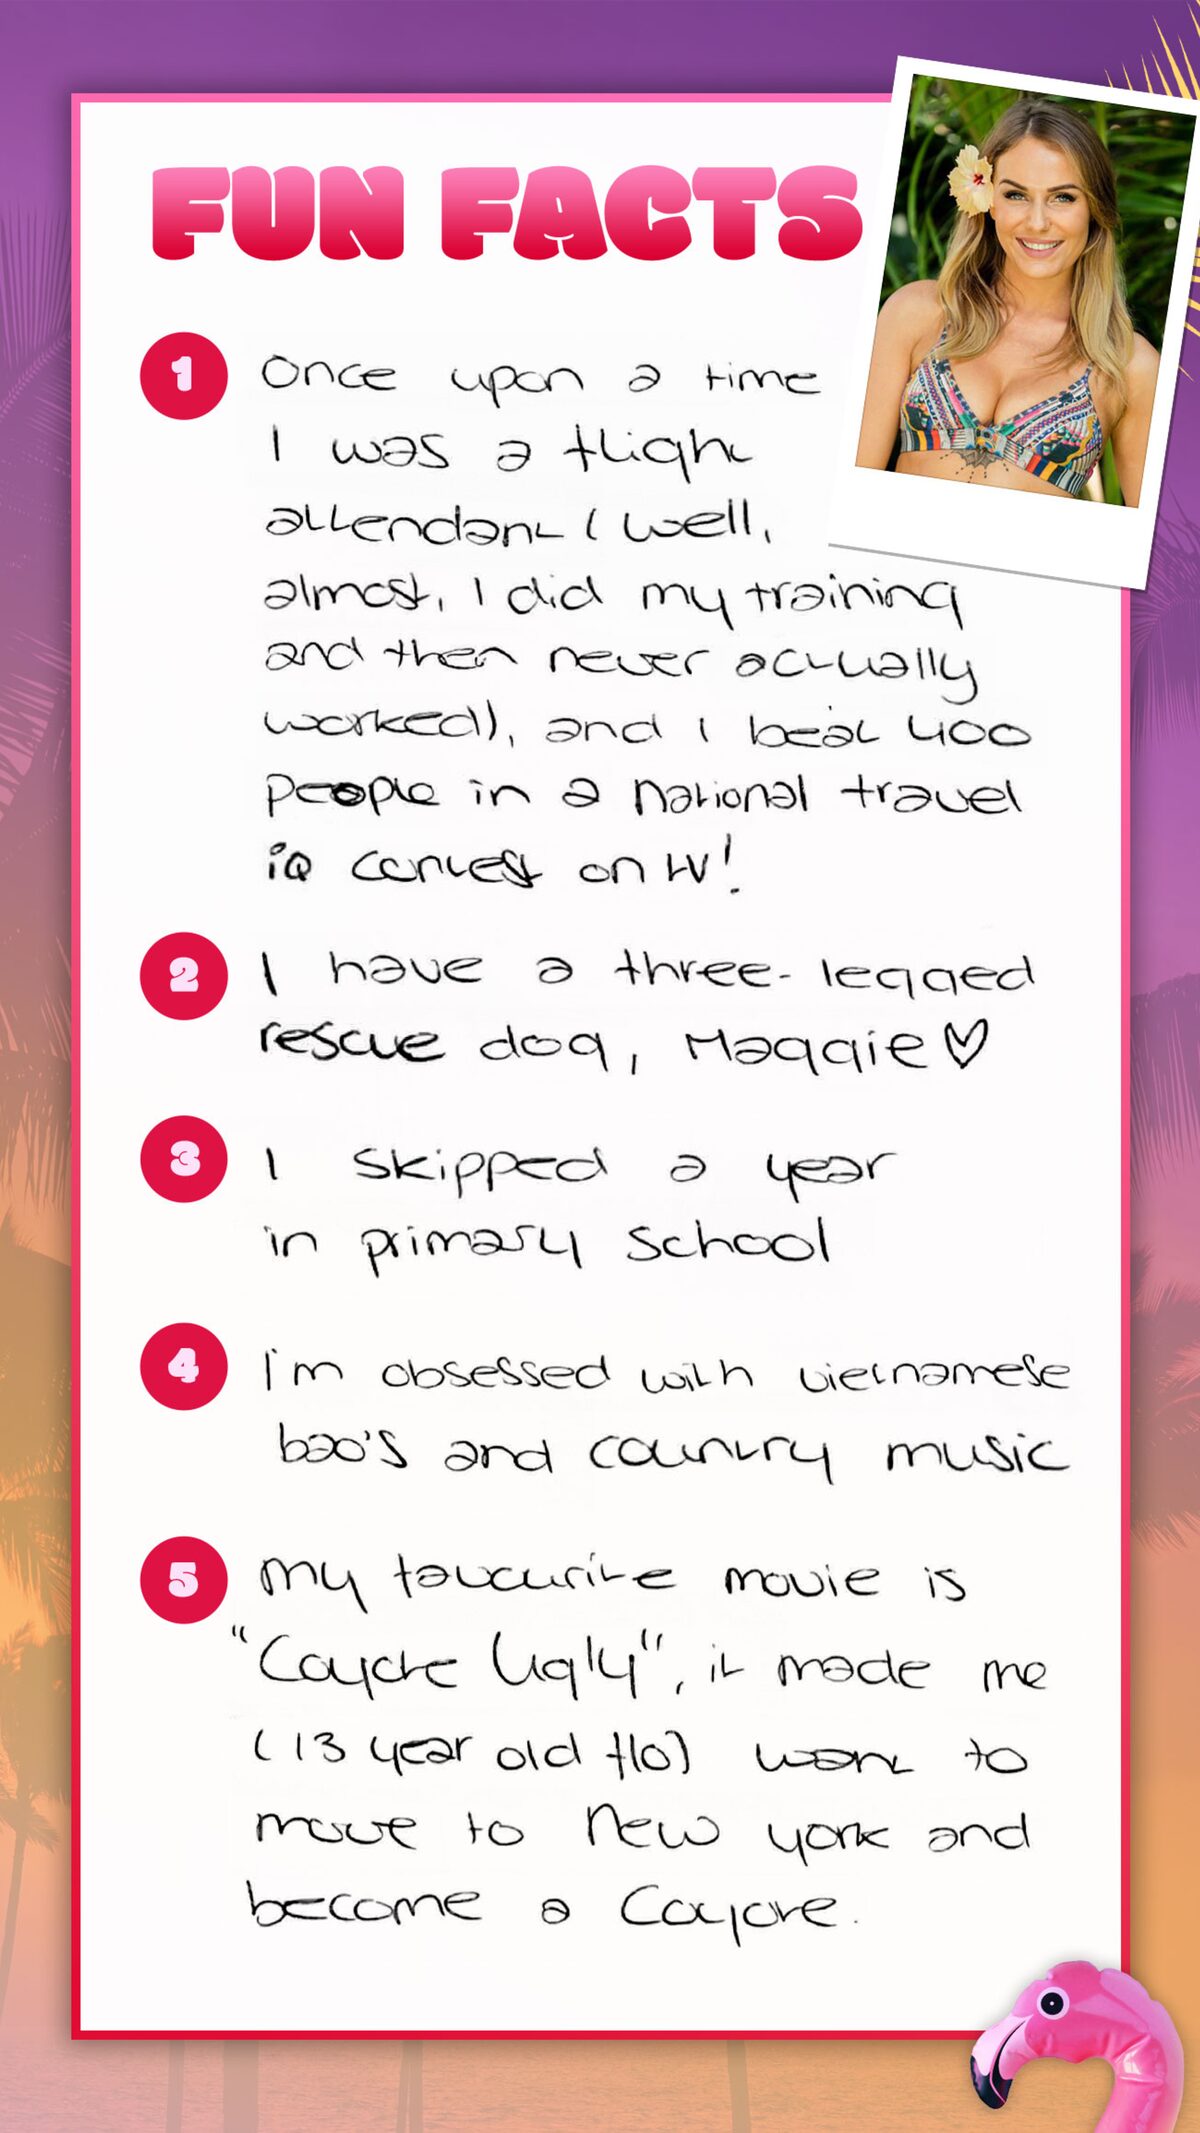 FUN FACTS
1 Once upon a time
I was a flight
attendant (well,
almost, I did my training
and then never actually
worked), and I beat 400
people in a national travel
iQ contest on tv!
2 I have a three-legged
rescue dog, Maggie♡
3 I skipped a year
in primary school
4 I'm obsessed with vietnamese
bao's and country music
5 My favourite movie is
"Coyote Ugly", it made me
(13 year old flo) want to
move to New york and
become a Coyote.